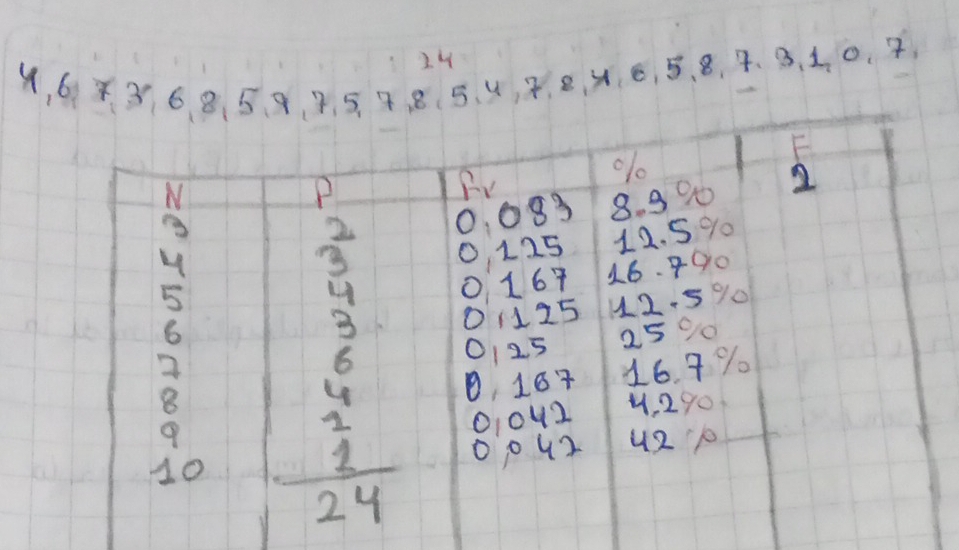 24
4, 6, 7, 3, 6, 8, 5, 9, 7, 5, 7, 8, 5, 4, 7, 8, 4, 6, 5, 8, 7, 3, 1, 0, 7,
N P Fr % F
3 2 0,083 8.3% 2
4 3 0,125 12.5%
5 4 0,167 16.7%
6 3 0,125 12.5%
7 6 0,25 25%
8 4 0,167 16.7%
9 1 0,042 4,2%
10 1 0,042 42%
24